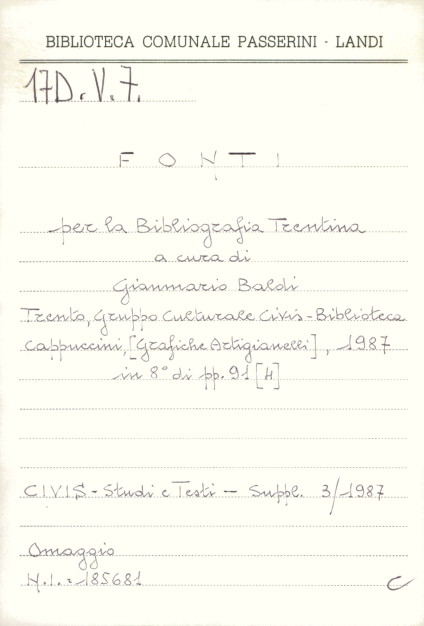 BIBLIOTECA COMUNALE PASSERINI - LANDI
17D.V.7.
FONTI
per la Bibliografia Trentina
a cura di
Gianmario Baldi
Trento, Gruppo Culturale Civis - Biblioteca
Cappuccini, [Grafiche Artigianelli], 1987
in 8° di pp. 91 [4]
CIVIS - Studi e Testi - Suppl. 3/1987
Omaggio
N.I. = 185681
C